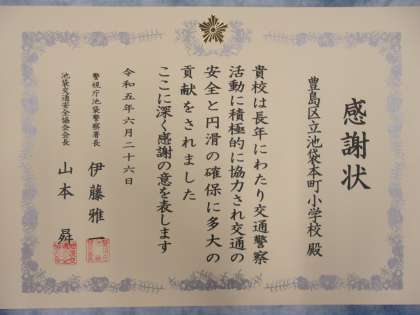 感謝状
豊島区立池袋本町小学校 殿
貴校は長年にわたり交通警察
活動に積極的に協力され交通の
安全と円滑の確保に多大の
貢献をされました
ここに深く感謝の意を表します
令和五年六月二十六日
警視庁池袋警察署長 伊藤雅一
池袋交通安全協会会長 山本 昇